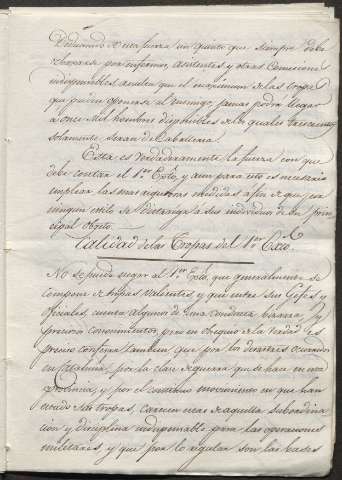 Deduciendo de esta fuerza un quinto que siempre debe
rebajarse por enfermos, asistentes y otras Comisiones
indispensables resulta que el maximum de las tropas
que pueden oponerse al enemigo jamas podrá llegar
a once mil hombres disponibles de los quales trescientos
solamente seran de Caballeria.
Esta es verdaderamente la fuerza con que
debe contar el 1.er Exto, y aun para esto es necesario
emplear las mas rigurosas medidas afin de que con
ningun estilo se distraiga a sus individuos de su prin
cipal objeto.
Calidad de las Tropas del 1.er Exto
No se puede negar al 1.er Exto, que generalmente se
compone de tropas valientes, y que entre sus Gefes y
oficiales, cuenta algunos de una conducta bizarra, y
precisos conocimientos, pero en obsequio de la verdad es
preciso confesar tambien que por los desastres ocurridos
en Cataluña, por la clase de guerra que se hace en esta
Provincia, y por el continuo movimiento en que han
estado estas tropas, carecen estas de aquella subordina
cion y disciplina indispensable para las operaciones
militares, y que por lo regular son las bases